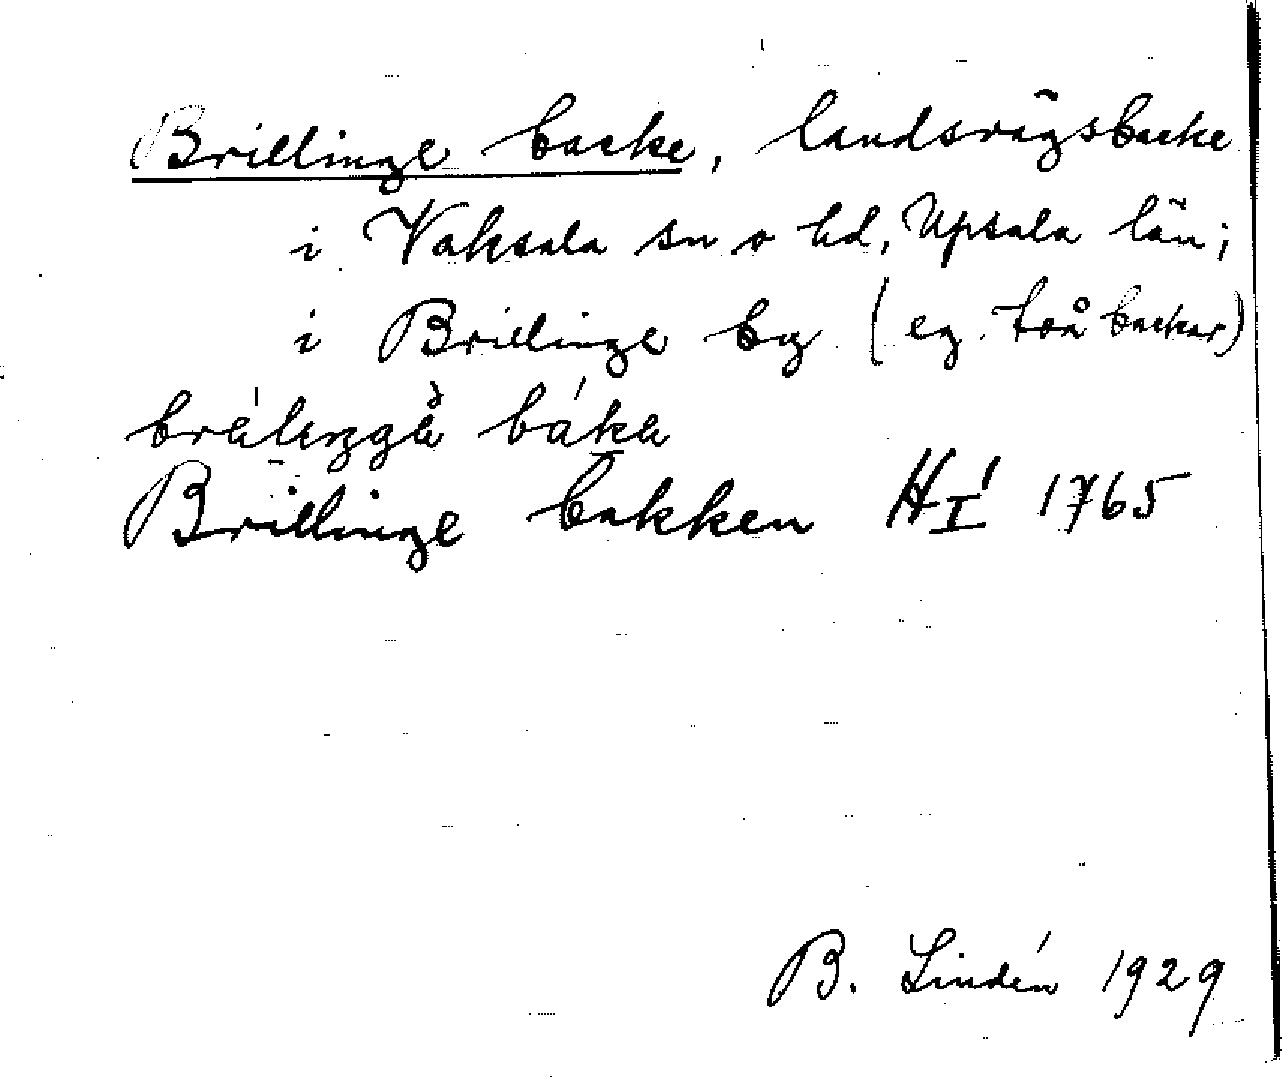 Brillinge backe, landsvägsbacke
i Vaksala sn o hd, Upsala län;
i Brillinge by (eg. två backar)
Brillinge bakken HI' 1765
B. Lindén 1929